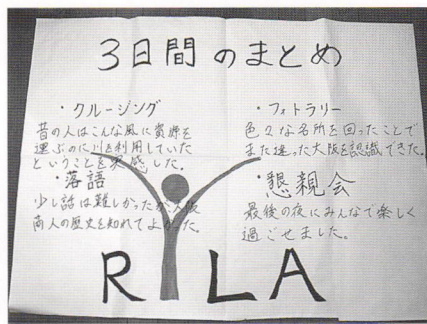 3日間のまとめ
・クルージング
昔の人はこんな風に資源を
運ぶのに川を利用していた
ということを実感した。
・落語
少し話は難しかったが、大阪
商人の歴史を知れてよかった。
・フォトラリー
色々な名所を回ったことで
また違った大阪を認識できた。
・懇親会
最後の夜にみんなで楽しく
過ごせました。
RYLA